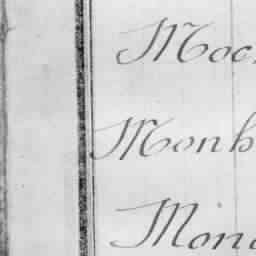 Moo
Monh
Mon